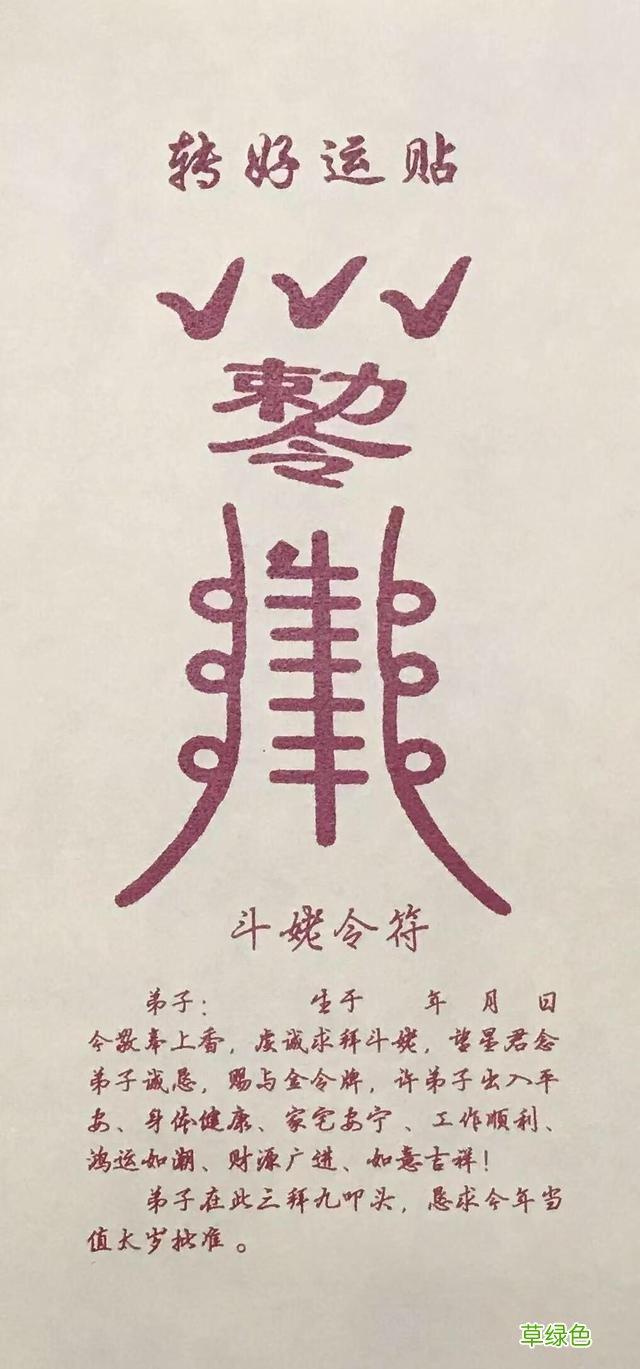 转好运贴
敕令
斗姥令符
弟子： 生于 年 月 日
今敬奉上香，虔诚求拜斗姥，望星君念
弟子诚恳，赐与金令牌，许弟子出入平
安、身体健康、家宅安宁、工作顺利、
鸿运如潮、财源广进、如意吉祥！
弟子在此三拜九叩头，恳求今年当
值太岁批准。
草绿色